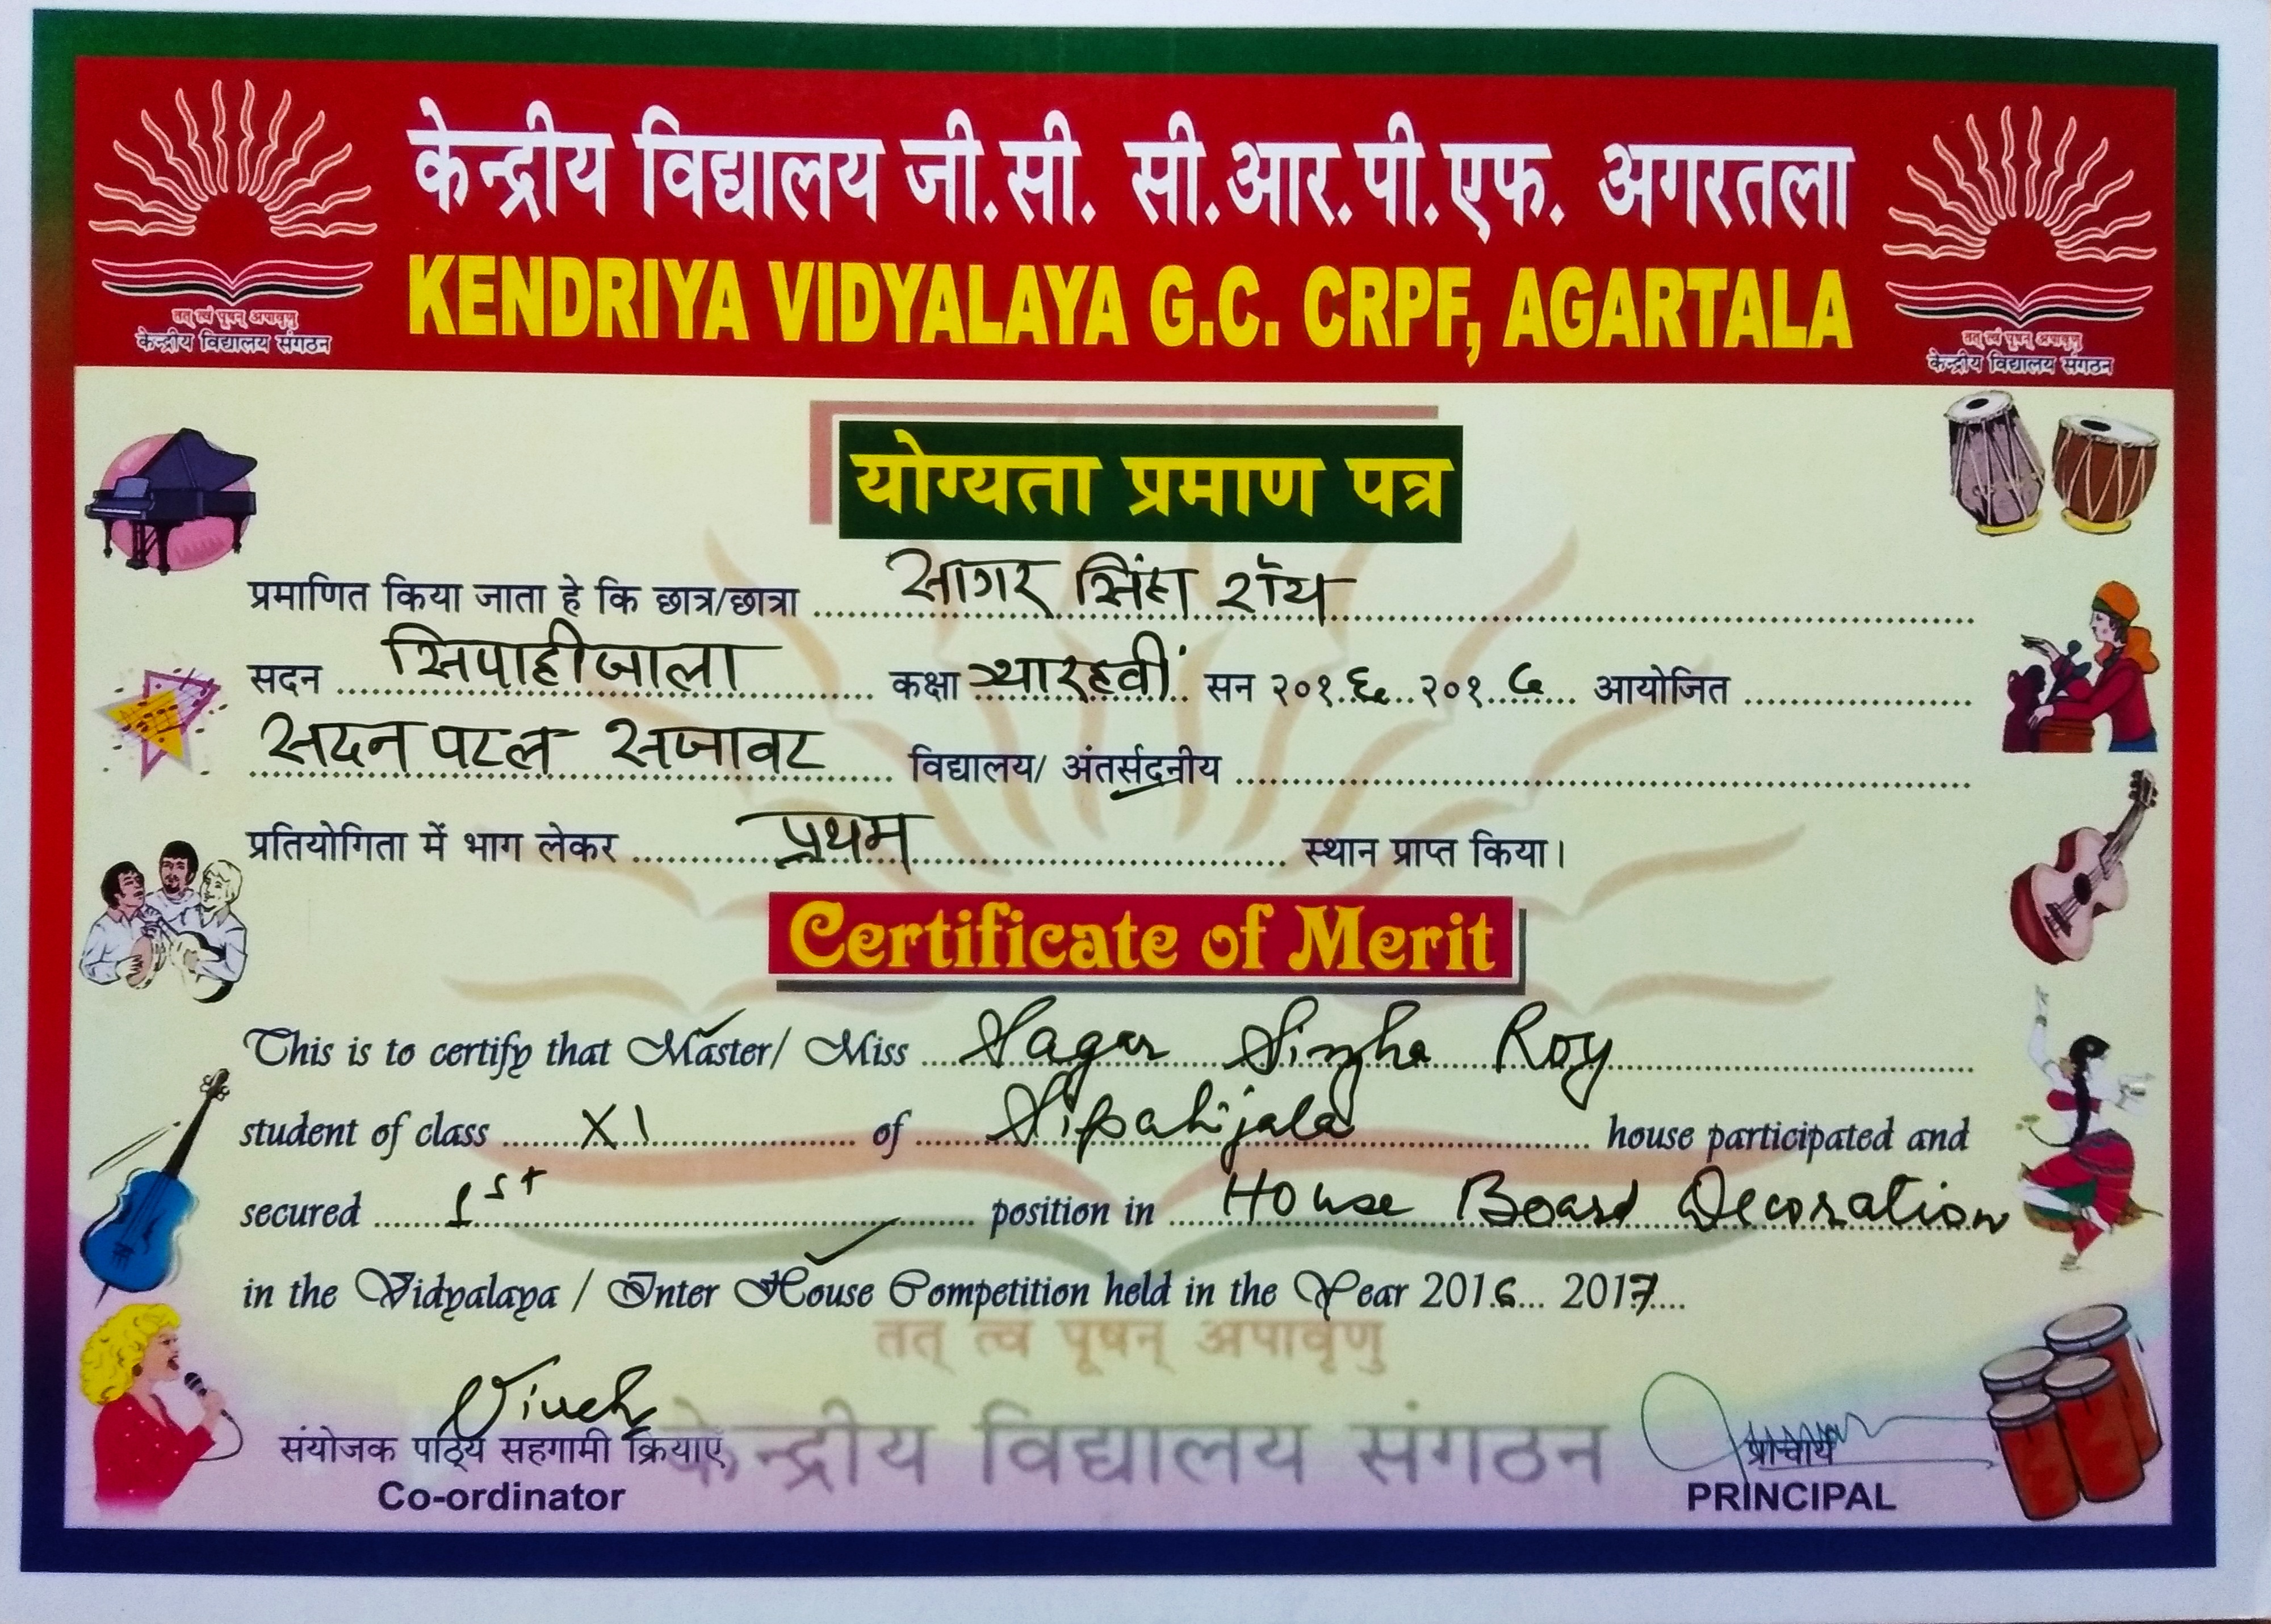 केन्द्रीय विद्यालय जी.सी. सी.आर.पी.एफ. अगरतला
KENDRIYA VIDYALAYA G.C. CRPF, AGARTALA
तत् त्वं पूषन् अपावृणु
केन्द्रीय विद्यालय संगठन
तत् त्वं पूषन् अपावृणु
केन्द्रीय विद्यालय संगठन
योग्यता प्रमाण पत्र
प्रमाणित किया जाता हे कि छात्र/छात्रा सागर सिंह रॉय
सदन सिपाहीजाला कक्षा ग्यारहवीं सन २०१६ २०१७ आयोजित
सदन पटल सजावट विद्यालय/ अंतर्सदनीय
प्रतियोगिता में भाग लेकर प्रथम स्थान प्राप्त किया।
Certificate of Merit
This is to certify that Master/ Miss Sagar Singha Roy
student of class XI of Sipahijala house participated and
secured 1st position in House Board Decoration
in the Vidyalaya / Inter House Competition held in the Year 2016 2017
तत् त्वं पूषन् अपावृणु
केन्द्रीय विद्यालय संगठन
संयोजक पाठ्य सहगामी क्रियाएं
Co-ordinator
प्राचार्य
PRINCIPAL